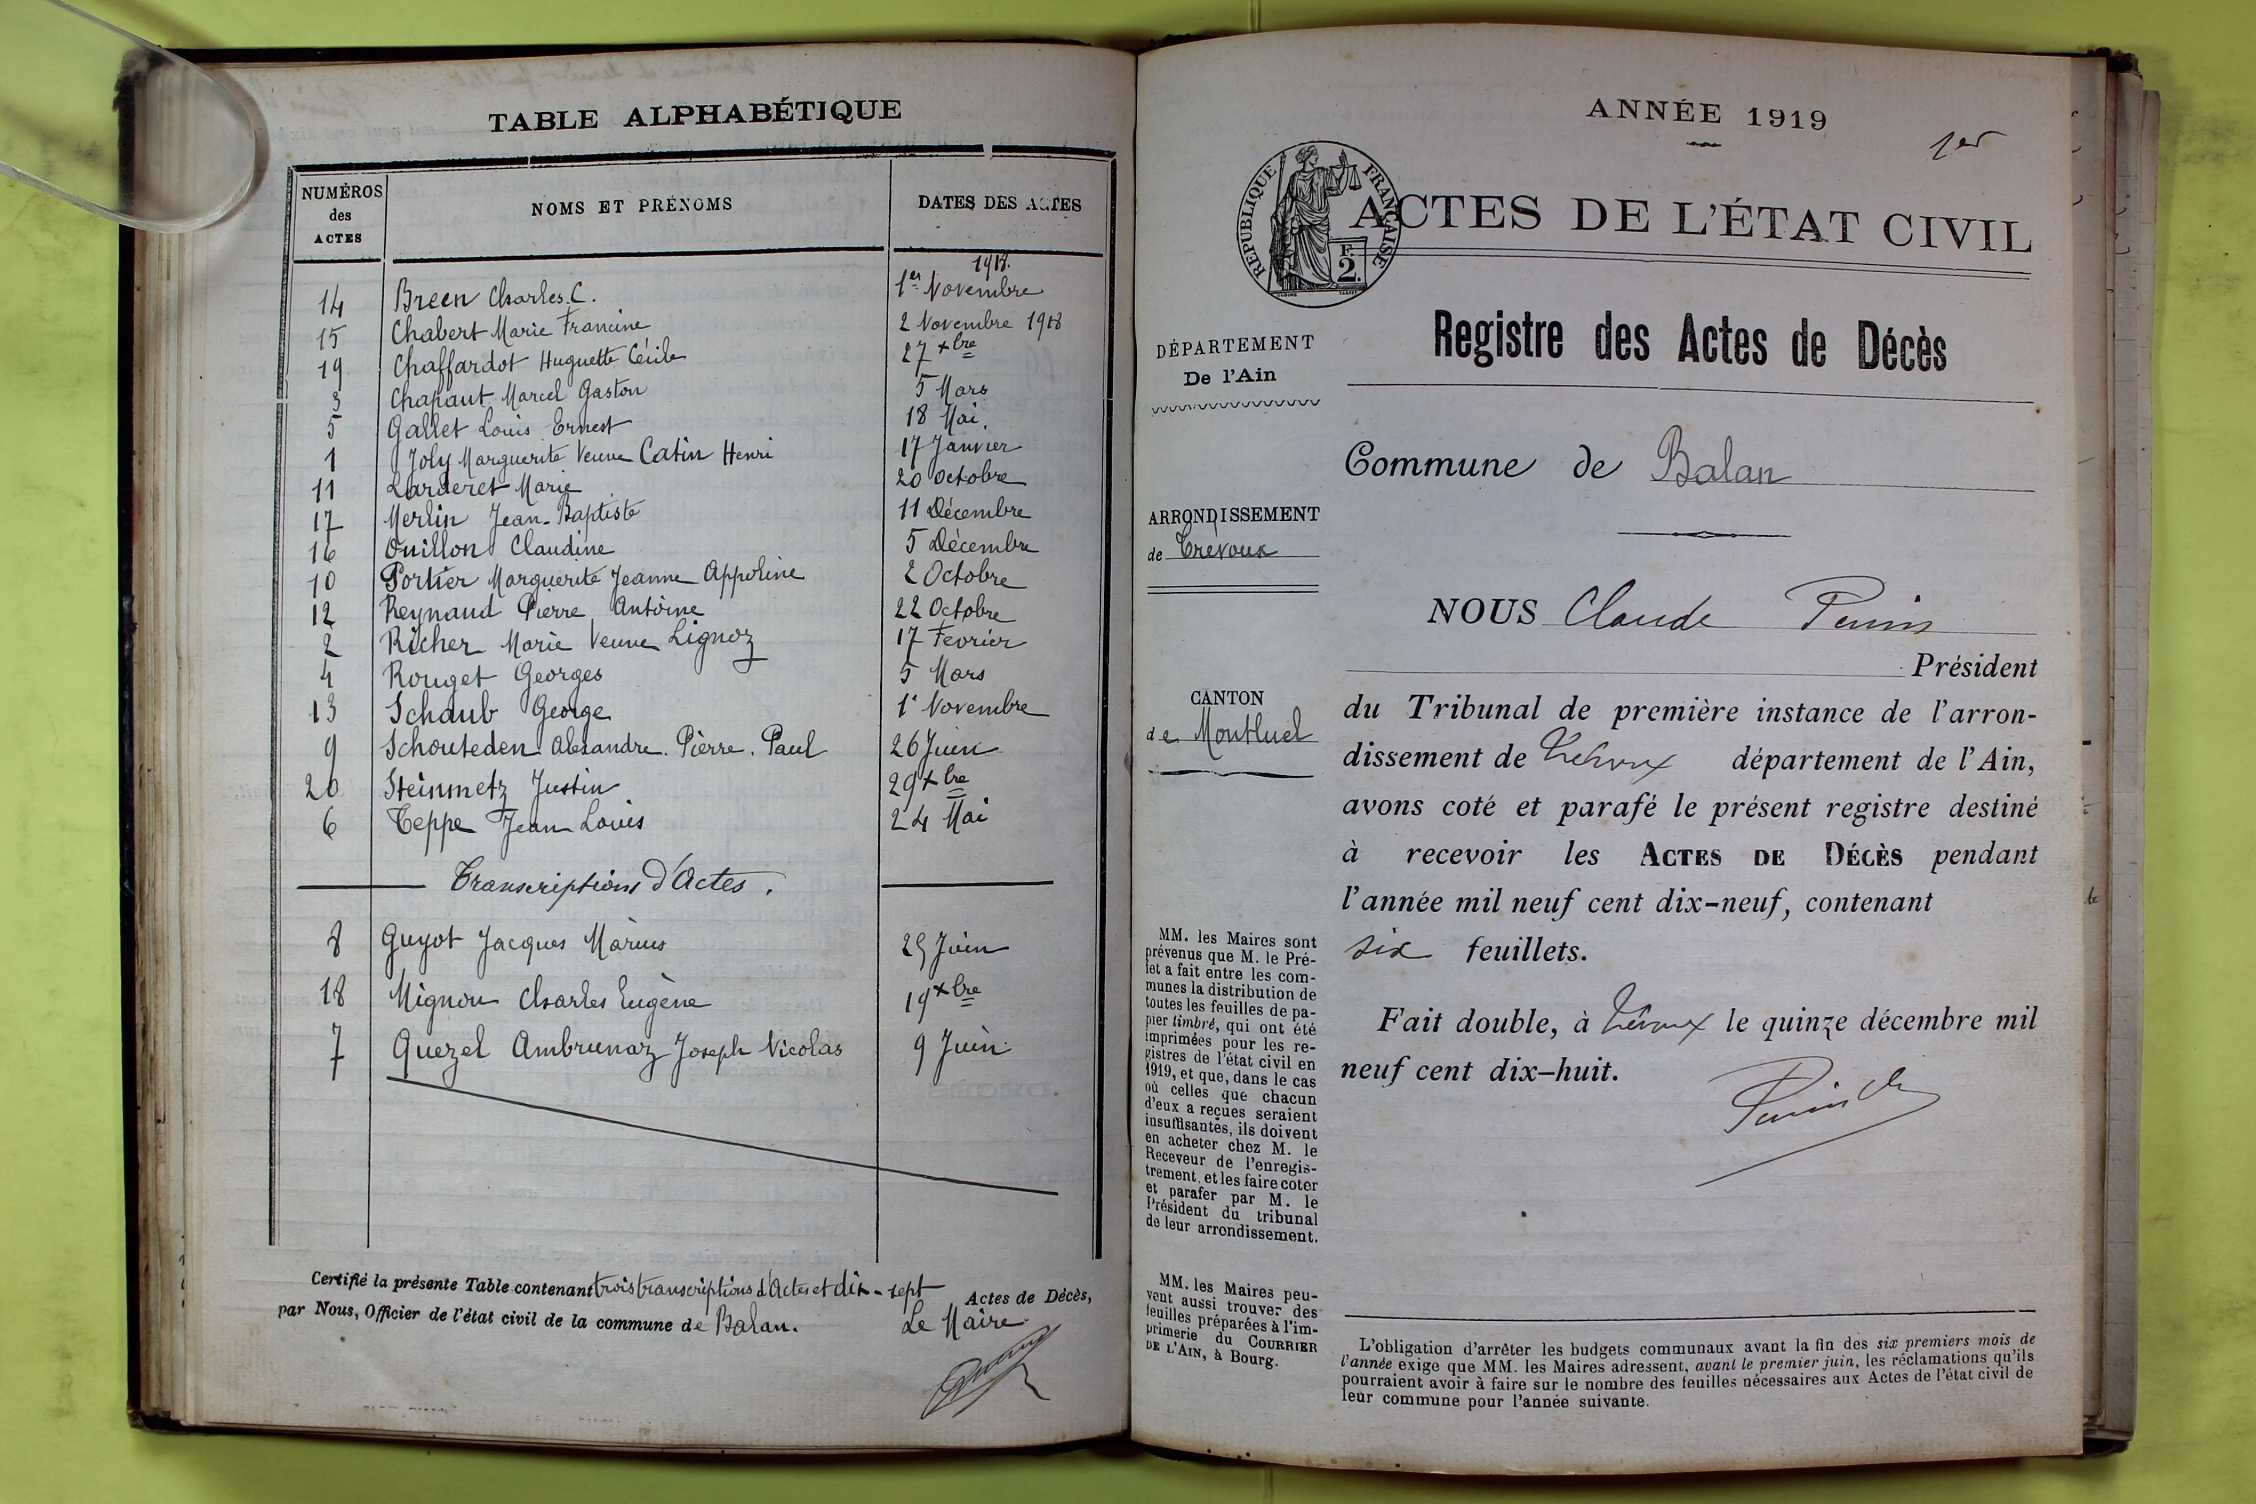 TABLE ALPHABÉTIQUE
NUMÉROS des ACTES NOMS ET PRÉNOMS DATES DES ACTES
1918.
14 Breen Charles.C. 1er Novembre
15 Chabert Marie Francine 2 Novembre 1918
19 Chaffardot Huguette Cécile 27 xbre
3 Chapaut Marcel Gaston 5 Mars
5 Gallet Louis Ernest 18 Mai.
1 Joly Marguerite Veuve Catin Henri 17 Janvier
11 Larderet Marie 20 Octobre
17 Merlin Jean-Baptiste 11 Décembre
16 Ouillon Claudine 5 Décembre
10 Portier Marguerite Jeanne Appoline 2 Octobre
12 Reynaud Pierre Antoine 22 Octobre
2 Richer Marie Veuve Lignoz 17 Fevrier
4 Rouget Georges 5 Mars
13 Schaub George 1er Novembre
9 Schouteden Alexandre. Pierre. Paul 26 Juin
20 Steinmetz Justin 29 xbre
6 Teppe Jean Louis 24 Mai
Transcriptions d'Actes.
8 Guyot Jacques Marius 25 Juin
18 Mignon Charles Eugène 19 xbre
7 Quezel Ambrunaz Joseph Nicolas 9 Juin
Certifié la présente Table contenant trois transcriptions d'Actes et dix-sept Actes de Décès,
par Nous, Officier de l'état civil de la commune de Balan. Le Maire
ANNÉE 1919
1er
RÉPUBLIQUE FRANÇAISE
F. 2.
ACTES DE L'ÉTAT CIVIL
Registre des Actes de Décès
DÉPARTEMENT
De l'Ain
Commune de Balan
ARRONDISSEMENT
de Trévoux
NOUS Claude Perrin
Président
CANTON
de Montluel
du Tribunal de première instance de l'arron-
dissement de Trévoux département de l'Ain,
avons coté et parafé le présent registre destiné
à recevoir les ACTES DE DÉCÈS pendant
l'année mil neuf cent dix-neuf, contenant
six feuillets.
Fait double, à Trévoux le quinze décembre mil
neuf cent dix-huit.
MM. les Maires sont
prévenus que M. le Pré-
fet a fait entre les com-
munes la distribution de
toutes les feuilles de pa-
pier timbré, qui ont été
imprimées pour les re-
gistres de l'état civil en
1919, et que, dans le cas
où celles que chacun
d'eux a reçues seraient
insuffisantes, ils doivent
en acheter chez M. le
Receveur de l'enregis-
trement, et les faire coter
et parafer par M. le
Président du tribunal
de leur arrondissement.
MM. les Maires peu-
vent aussi trouver des
feuilles préparées à l'im-
primerie du COURRIER
DE L'AIN, à Bourg.
L'obligation d'arrêter les budgets communaux avant la fin des six premiers mois de
l'année exige que MM. les Maires adressent, avant le premier juin, les réclamations qu'ils
pourraient avoir à faire sur le nombre des feuilles nécessaires aux Actes de l'état civil de
leur commune pour l'année suivante.